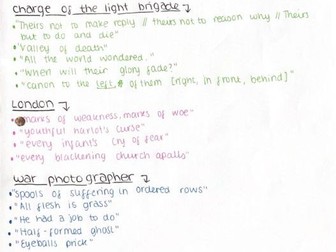 charge of the light brigade
• "Theirs not to make reply // theirs not to reason why // Theirs
but to do and die"
• "Valley of death"
• "All the world wondered."
• "When will their glory fade?"
• "canon to the left # of them [right, in front, behind]"
London
• marks of weakness, marks of woe"
• "youthful harlot's curse"
• "every infant's cry of fear"
• "every blackening church apalls"
war photographer
• "spools of suffering in ordered rows"
• "All flesh is grass"
• "He had a job to do"
• "Half-formed ghost"
• "Eyeballs prick"